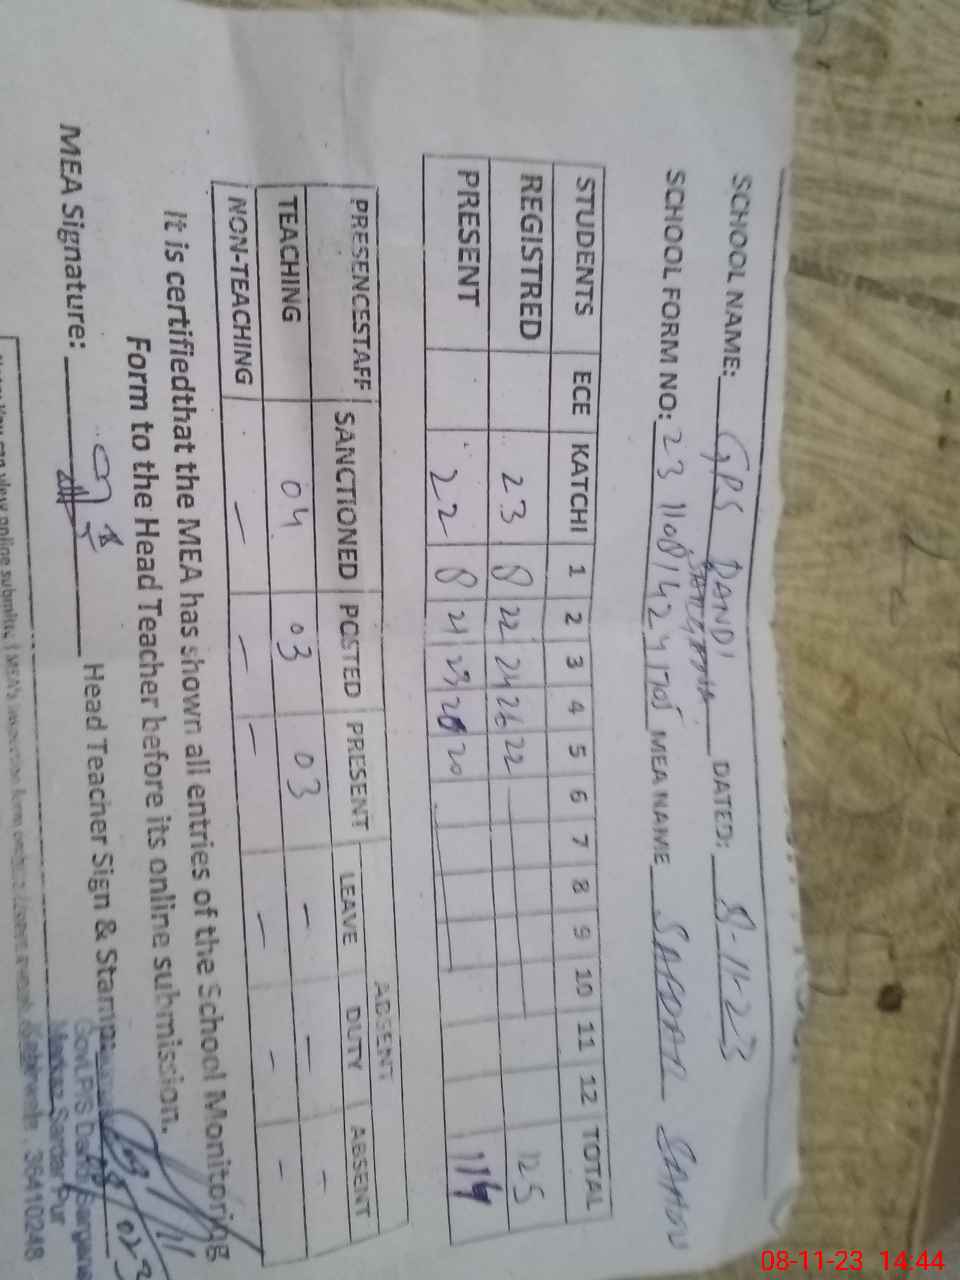 SCHOOL NAME: GPS DANDI SARGANA DATED: 8-11-23
SCHOOL FORM NO: 23 1108142241705 MEA NAME SAFDAR
STUDENTS ECE KATCHI 1 2 3 4 5 6 7 8 9 10 11 12 TOTAL
REGISTRED 23 8 22 24 26 22 125
PRESENT 22 8 21 23 20 20 114
ABSENT
PRESENCESTAFF SANCTIONED POSTED PRESENT LEAVE DUTY ABSENT
TEACHING 04 03 03 - - -
NON-TEACHING - - - - - -
It is certifiedthat the MEA has shown all entries of the School Monitoring
Form to the Head Teacher before its online submission.
MEA Signature: Head Teacher Sign & Stamp:
Govt. P/S Dandi Sargana
Markaz Sardar Pur
Kabirwala. 36410248
08-11-23 14:44